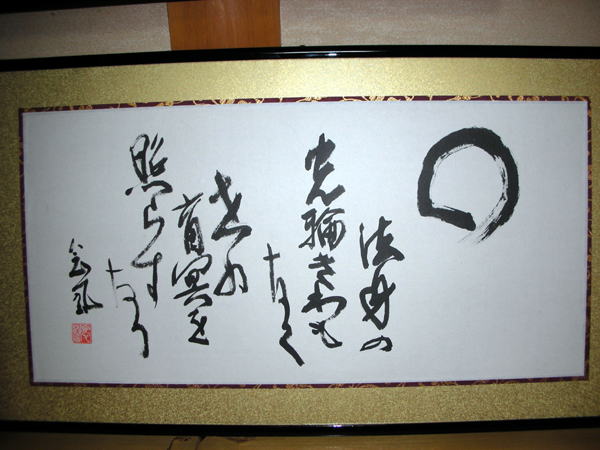 法身の
光輪きわも
なく
世の
盲冥を
照らす
なり